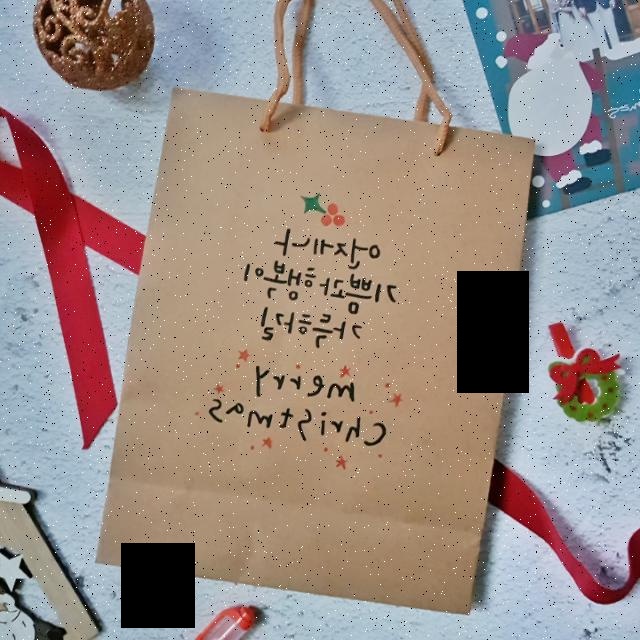 언제나
기쁨과행복이
가득하길
merry
christmas